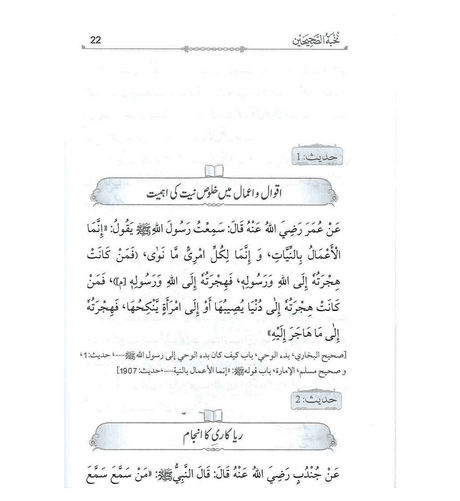 نُخبةُ الصَّحِيحَين 22
حدیث: 1
اقوال و اعمال میں خلوص نیت کی اہمیت
عَنْ عُمَرَ رَضِيَ اللهُ عَنْهُ قَالَ: سَمِعْتُ رَسُولَ اللهِ ﷺ يَقُولُ: «إِنَّمَا
الْأَعْمَالُ بِالنِّيَّاتِ، وَ إِنَّمَا لِكُلِّ امْرِئٍ مَّا نَوٰى، (فَمَنْ كَانَتْ
هِجْرَتُهٗ إِلَى اللهِ وَرَسُولِهٖ، فَهِجْرَتُهٗ إِلَى اللهِ وَرَسُولِهٖ [م])، فَمَنْ
كَانَتْ هِجْرَتُهٗ إِلٰى دُنْيَا يُصِيبُهَا أَوْ إِلَى امْرَأَةٍ يَّنْكِحُهَا، فَهِجْرَتُهٗ
إِلٰى مَا هَاجَرَ إِلَيْهِ»
[صحيح البخاري، بدء الوحي، باب كيف كان بدء الوحي إلى رسول الله ﷺ ....، حديث: 1،
و صحيح مسلم، الإمارة، باب قوله ﷺ: «إنما الأعمال بالنية....، حديث: 1907]
حدیث: 2
ریا کاری کا انجام
عَنْ جُنْدُبٍ رَضِيَ اللهُ عَنْهُ قَالَ: قَالَ النَّبِيُّ ﷺ: «مَنْ سَمَّعَ سَمَّعَ